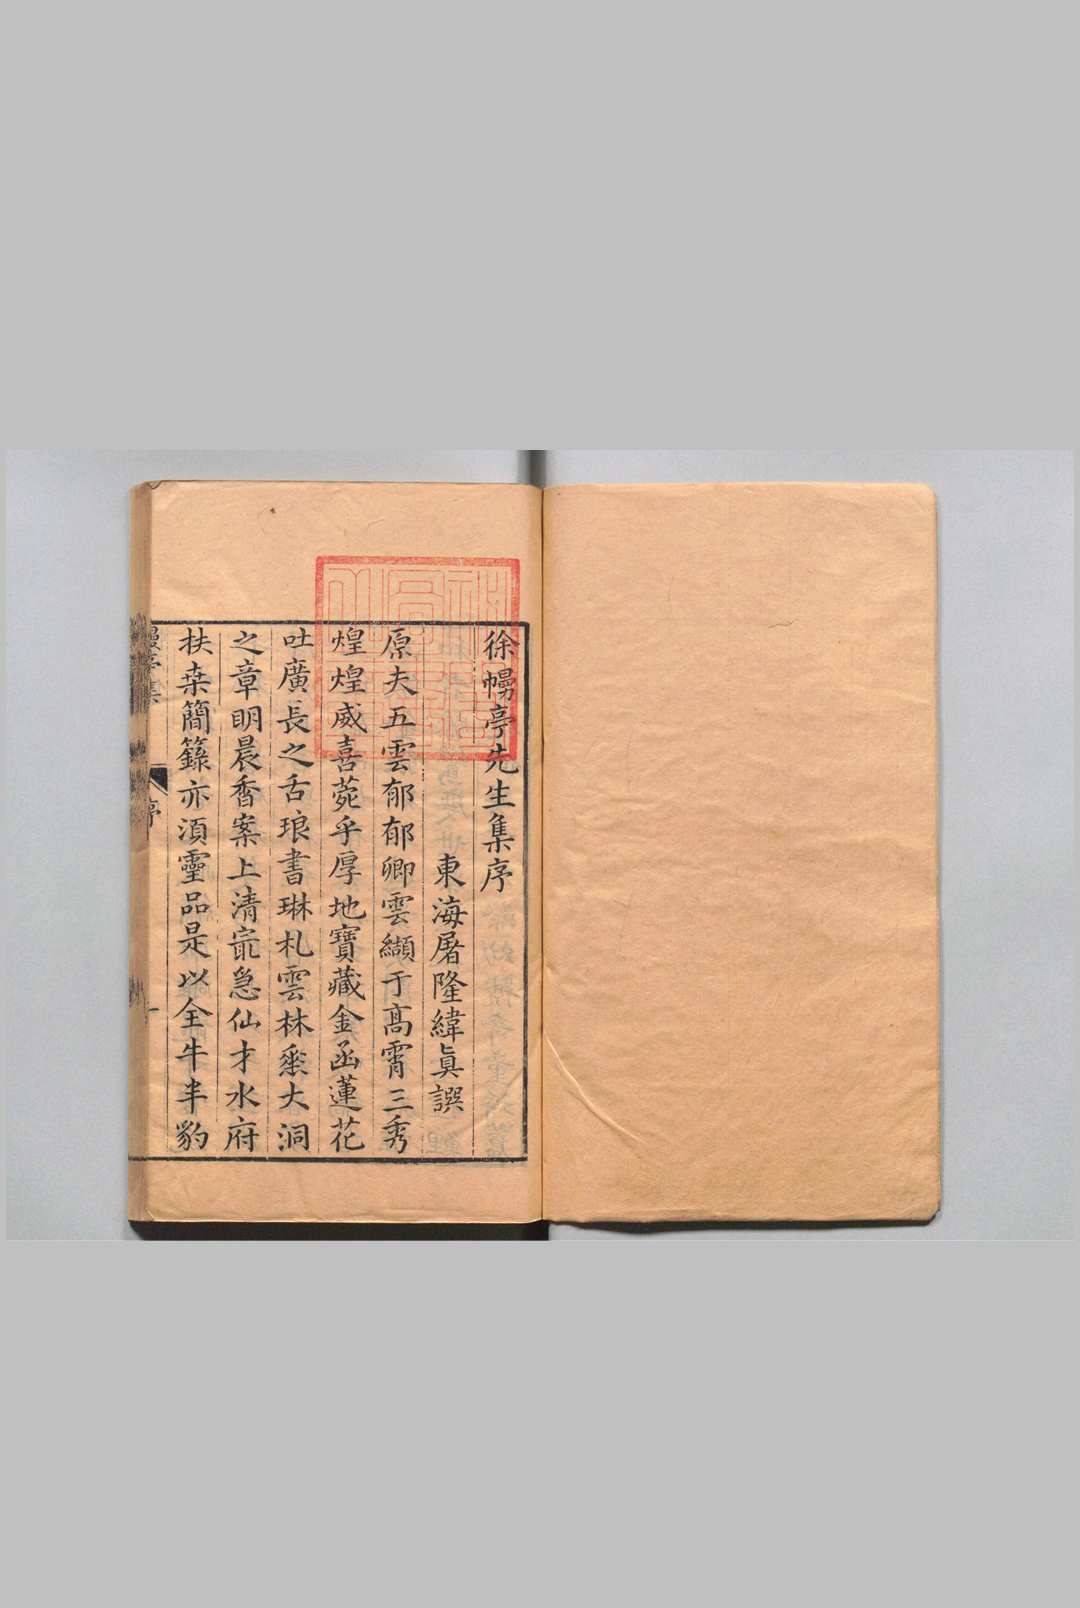 徐幔亭先生集序
東海屠隆緯眞譔
原夫五雲郁郁卿雲纈于髙霄三秀
煌煌威喜菀乎厚地寶藏金函蓮花
吐廣長之舌琅書琳札雲林埀大洞
之章明晨香案上清㝡急仙才水府
扶桒簡籙亦湏靈品是以全牛半豹
序
一